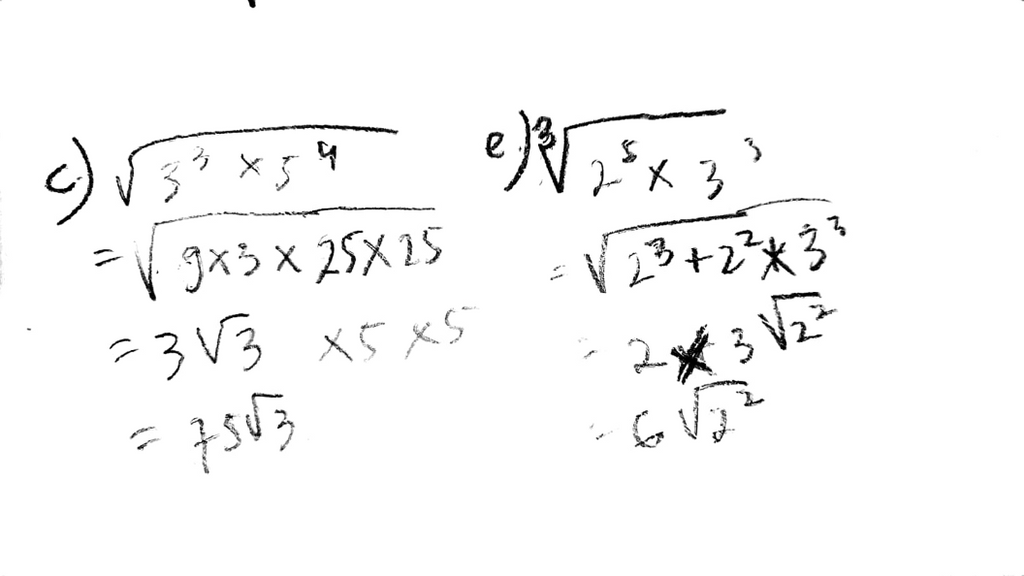 c) √(3³ × 5⁴)
= √(9×3 × 25×25)
= 3√3 ×5 ×5
= 75√3
e) ³√(2⁵ × 3³)
= √(2³+2² × 3³)
= 2 × 3 √2²
= 6 √2²